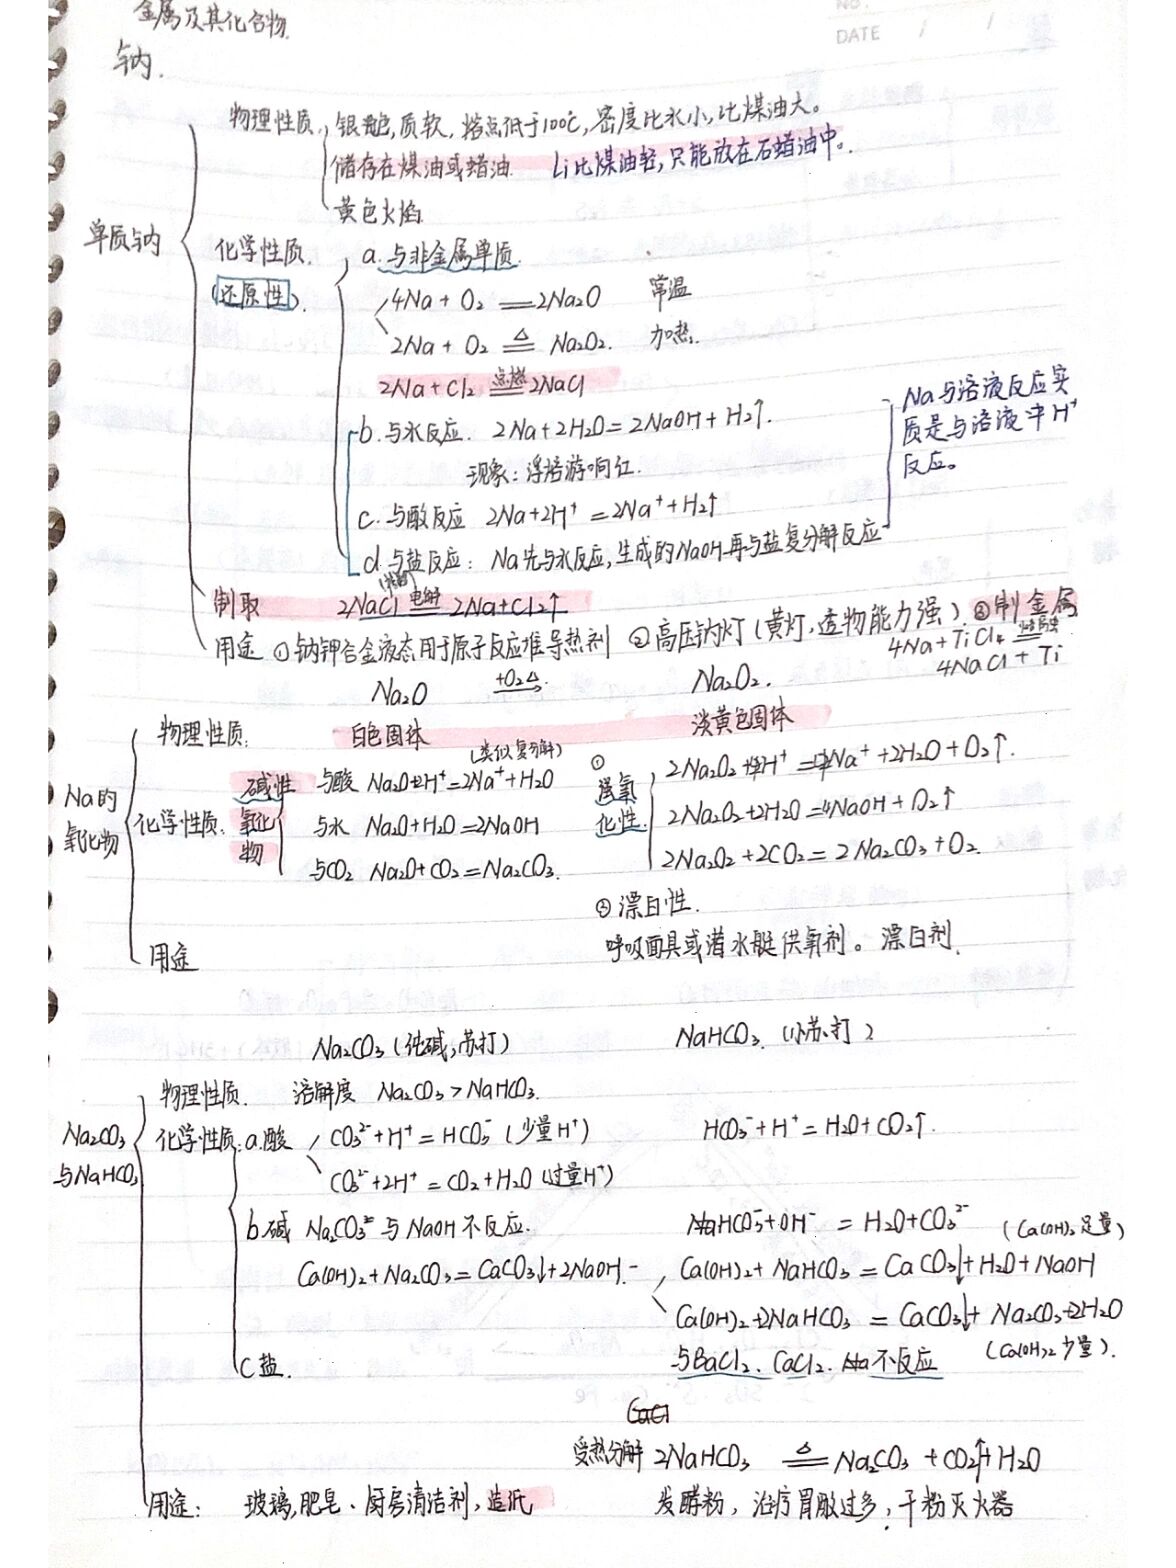 金属及其化合物.
NO.
DATE / /
钠.
物理性质, 银白色,质软,熔点低于100℃,密度比水小,比煤油大。
储存在煤油或蜡油. Li比煤油轻,只能放在石蜡油中.
黄色火焰
单质钠
化学性质. a.与非金属单质.
(还原性). 4Na + O₂ == 2Na₂O 常温
2Na + O₂ ≜ Na₂O₂. 加热.
2Na+Cl₂ 点燃== 2NaCl
b.与水反应. 2Na+2H₂O=2NaOH+H₂↑.
现象:浮熔游响红.
c.与酸反应 2Na+2H⁺=2Na⁺+H₂↑
d.与盐反应: Na先与水反应,生成的NaOH再与盐复分解反应
Na与溶液反应实
质是与溶液中H⁺
反应。
制取 2NaCl (熔融)电解== 2Na+Cl₂↑
用途 ①钠钾合金液态用于原子反应堆导热剂 ②高压钠灯(黄灯,透物能力强) ③制金属
4Na+TiCl₄ 熔融==
4NaCl+Ti
Na₂O +O₂ △→ Na₂O₂.
物理性质: 白色固体 淡黄色固体
Na的
氧化物
化学性质.
碱性
氧化
物
与酸 Na₂O+2H⁺=2Na⁺+H₂O (类似复分解)
与水 Na₂O+H₂O=2NaOH
与CO₂ Na₂O+CO₂=Na₂CO₃.
①
强氧
化性
2Na₂O₂+4H⁺=4Na⁺+2H₂O+O₂↑.
2Na₂O₂+2H₂O=4NaOH+O₂↑
2Na₂O₂+2CO₂=2Na₂CO₃+O₂
②漂白性.
用途 呼吸面具或潜水艇供氧剂。漂白剂.
Na₂CO₃(纯碱,苏打) NaHCO₃.(小苏打)
物理性质. 溶解度 Na₂CO₃>NaHCO₃.
Na₂CO₃
与NaHCO₃
化学性质: a.酸 CO₃²⁻+H⁺=HCO₃⁻(少量H⁺) HCO₃⁻+H⁺=H₂O+CO₂↑.
CO₃²⁻+2H⁺=CO₂+H₂O(过量H⁺)
b.碱 Na₂CO₃²⁻与NaOH不反应. HCO₃⁻+OH⁻=H₂O+CO₃²⁻ (Ca(OH)₂足量)
Ca(OH)₂+Na₂CO₃=CaCO₃↓+2NaOH. Ca(OH)₂+NaHCO₃=CaCO₃↓+H₂O+NaOH
Ca(OH)₂+2NaHCO₃=CaCO₃↓+Na₂CO₃+2H₂O
(Ca(OH)₂少量).
C盐. 与BaCl₂、CaCl₂.不反应
受热分解 2NaHCO₃ ≜ Na₂CO₃+CO₂↑+H₂O
用途: 玻璃,肥皂、厨房清洁剂,造纸 发酵粉,治疗胃酸过多,干粉灭火器